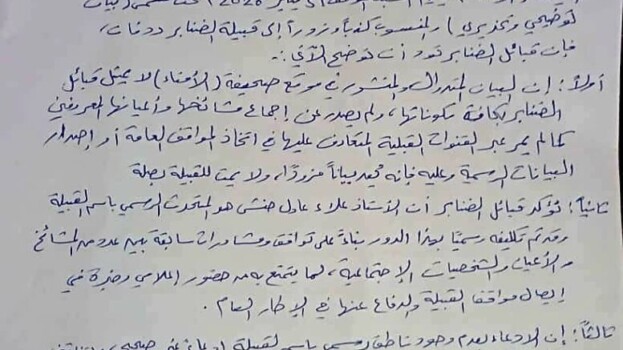 توضيحي وتحذيري) والمنسوب كذباً وزوراً إلى قبيلة الضنابر ردفان،
فإن قبائل الضنابر تود أن توضح الآتي :-
أولاً: إن البيان المتداول والمنشور في موقع صحيفة (الأمناء) لا يمثل قبائل
الضنابر بكافة مكوناتها، ولم يصدر عن إجماع مشائخها وأعيانها المعروفين
كما لم يمر عبر القنوات القبلية المتعارف عليها في اتخاذ المواقف العامة أو إصدار
البيانات الرسمية وعليه فإنه يُعد بياناً مزوراً، ولا يمت للقبيلة بصلة
ثانياً: تؤكد قبائل الضنابر أن الأستاذ علاء عادل حنش هو المتحدث الرسمي باسم القبيلة
وقد تم تكليفه رسمياً بهذا الدور بناءً على توافق ومشاورات سابقة بين عدد من المشائخ
والأعيان والشخصيات الإجتماعية، لما يتمتع به من حضور إعلامي وخبرة في
إيصال مواقف القبيلة والدفاع عنها في الإطار العام .
ثالثاً: إن الادعاء بعدم وجود ناطق رسمي باسم القبيلة ادعاء غير صحيح